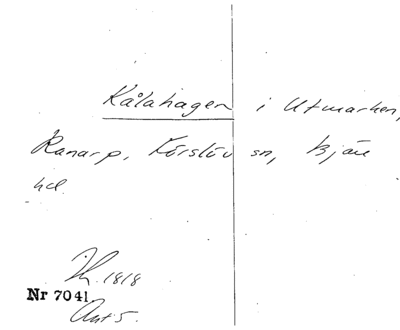 Kålahagen i Utmarken,
Ranarp, Förslöv sn, Bjäre
hd.
1818
Nr 7041.
Ant 5.